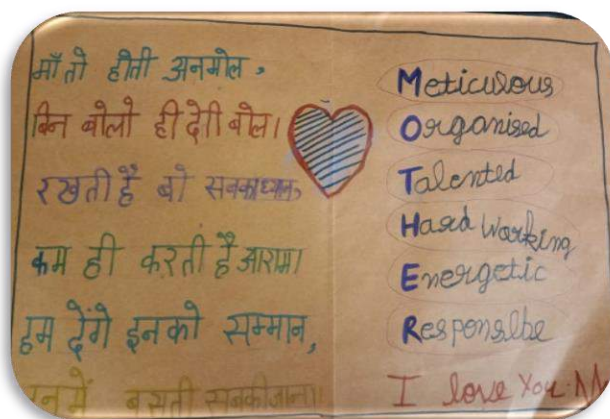 माँ तो होती अनमोल,
बिन बोलो ही देती बोल।
रखती है वो सबका ध्यान,
कम ही करती है आराम।
हम देंगे इनको सम्मान,
में बसती सबकी जान।
Meticulous
Organised
Talented
Hard Working
Energetic
Responsilbe
I love You